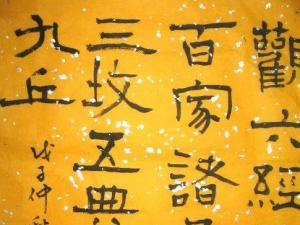 觀六經
百家諸
三坟五典
九丘
戊子仲秋